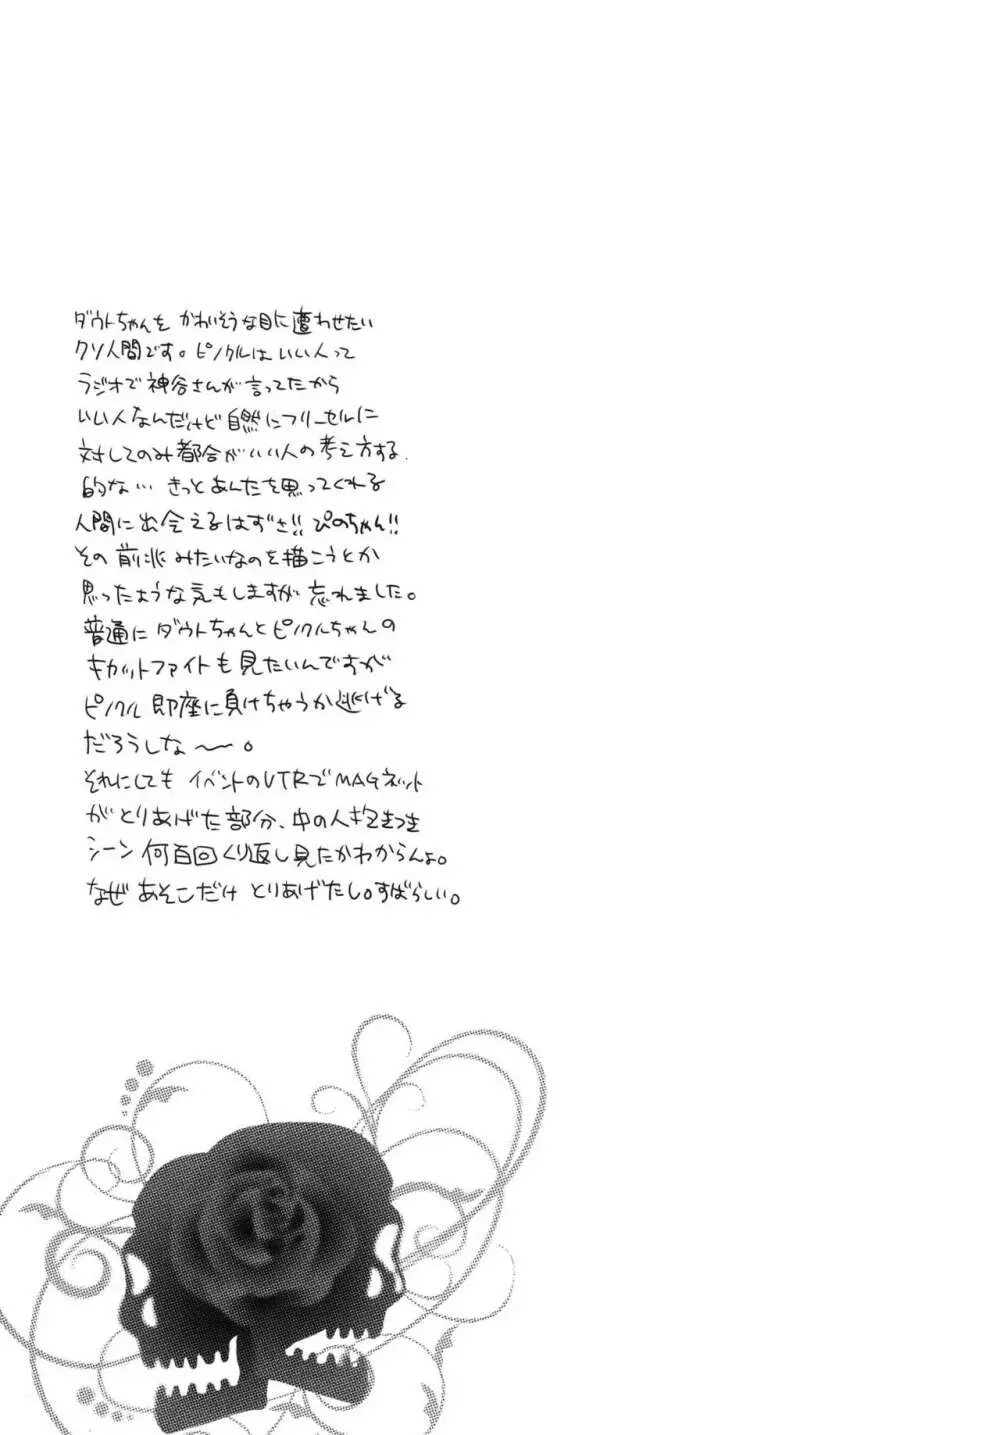 ダウトちゃんを かわいそうな目に遭わせたい
クソ人間です。ピノクルは いい人って
ラジオで 神谷さんが 言ってたから
いい人なんだけど 自然にフリーセルに
対してのみ 都合がいい人の考え方する
的な… きっとあんたを思ってくれる
人間に出会えるはずさ!! ぴのちゃん!!
その 前兆みたいなのを描こうとか
思ったような気もしますが 忘れました。
普通に ダウトちゃんとピノクルちゃんの
キャットファイトも見たいんですが
ピノクル 即座に負けちゃうか逃げる
だろうしな〜〜。
それにしても イベントのVTRで MAGネット
がとりあげた部分、中の人抱きつき
シーン 何百回くり返し見たかわからんよ。
なぜ あそこだけ とりあげたし。すばらしい。